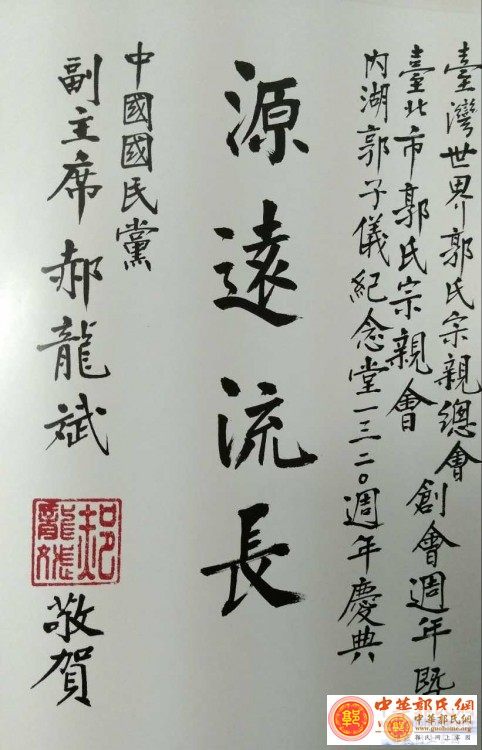 臺灣世界郭氏宗親總會
臺北市郭氏宗親會創會週年暨
內湖郭子儀紀念堂一三二〇週年慶典
源遠流長
中國國民黨
副主席郝龍斌
敬賀
中華郭氏網
www.guohome.org
郭氏網上家園